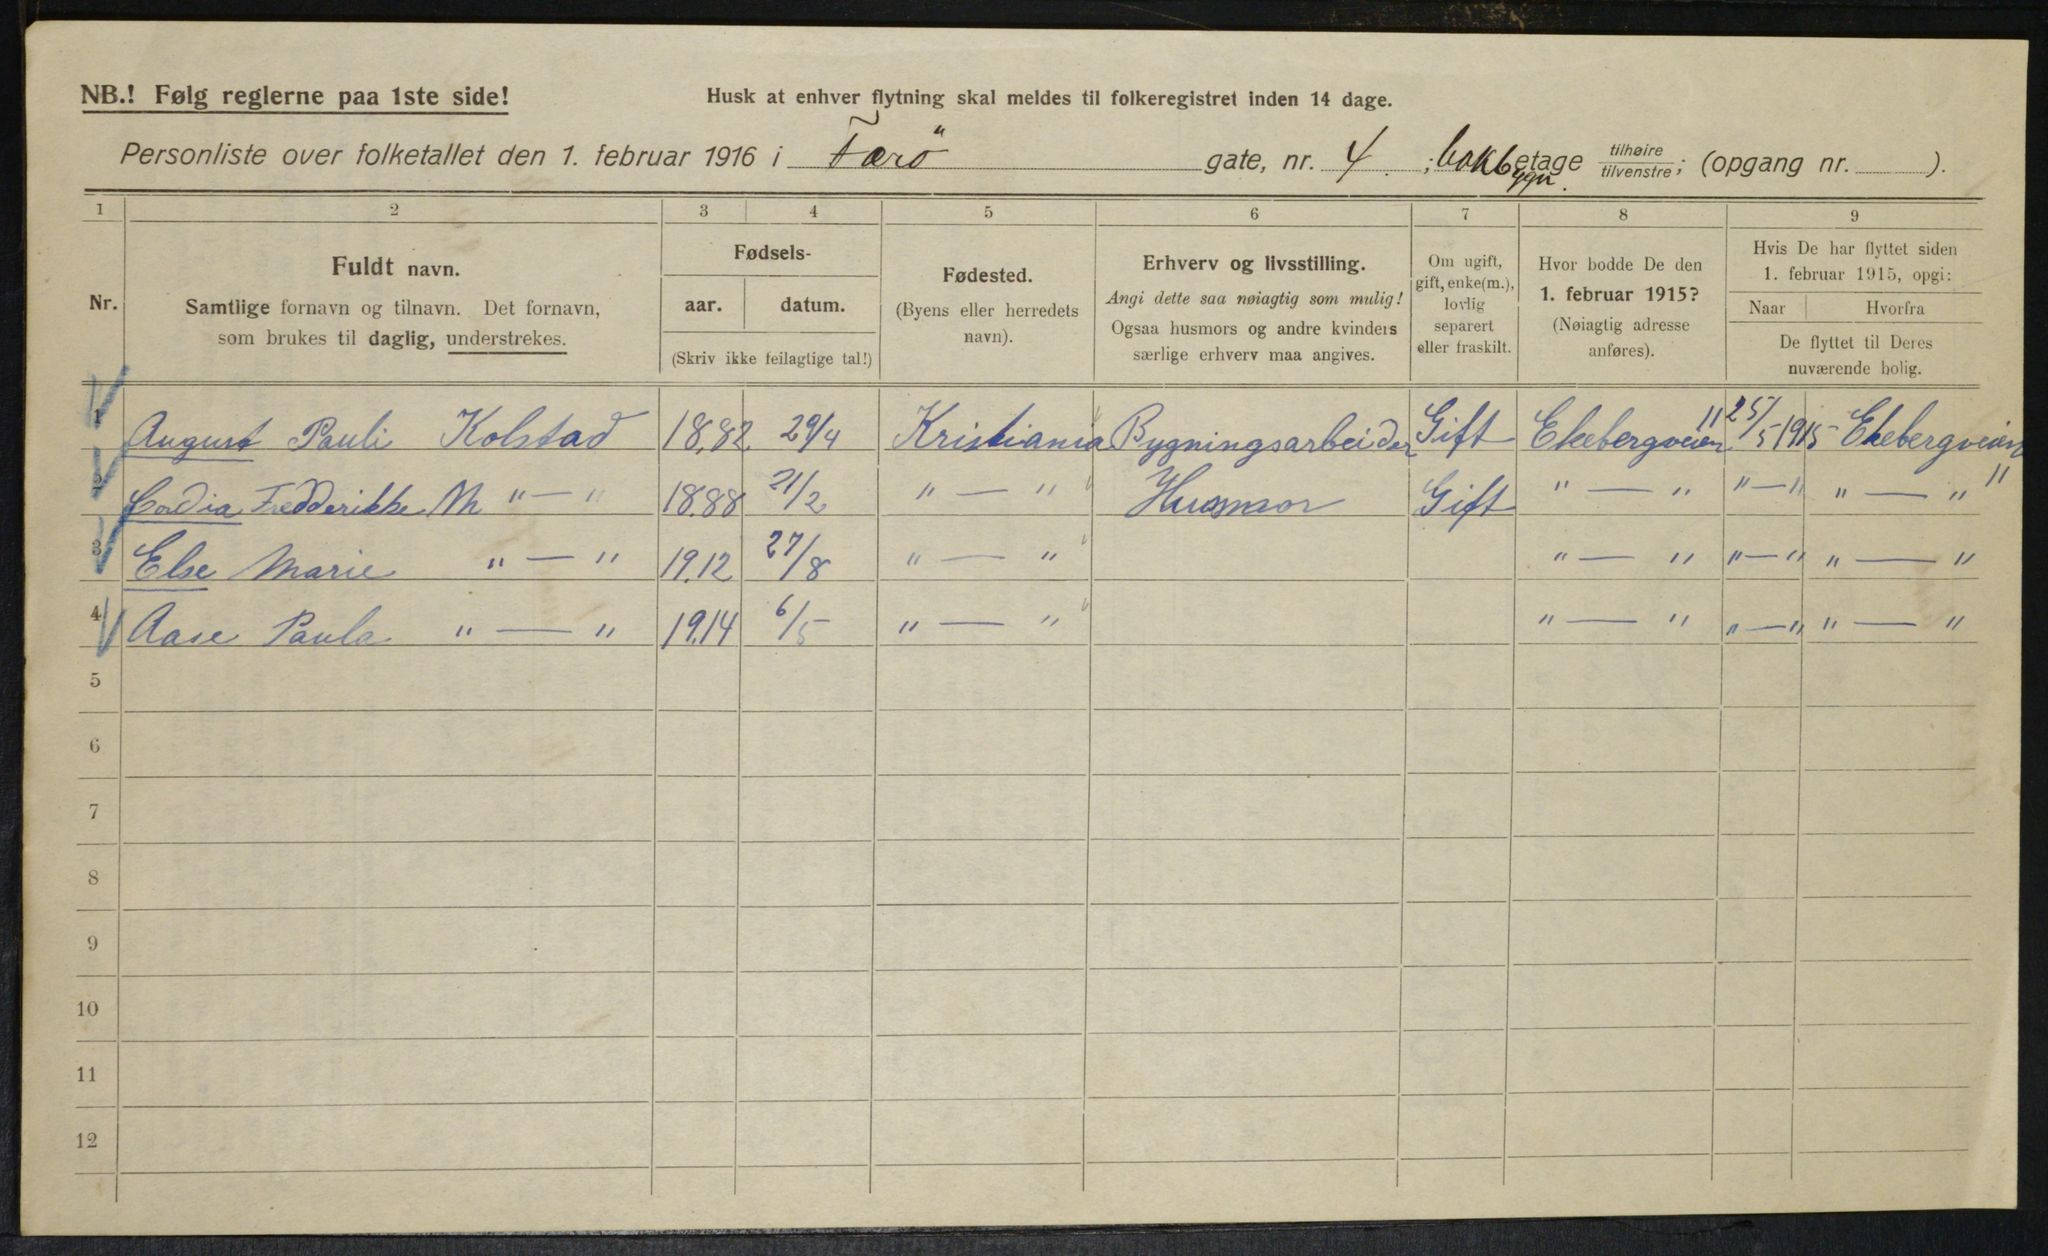 NB.! Følg reglerne paa 1ste side!
Husk at enhver flytning skal meldes til folkeregistret inden 14 dage.
Personliste over folketallet den 1. februar 1916 i Færö gate, nr. 4. ; bakbyggn. etage tilhøire/tilvenstre; (opgang nr. ).
1 2 3 4 5 6 7 8 9
Nr.
Fuldt navn.
Samtlige fornavn og tilnavn. Det fornavn,
som brukes til daglig, understrekes.
Fødsels-
aar. datum.
(Skriv ikke feilagtige tal!)
Fødested.
(Byens eller herredets
navn).
Erhverv og livsstilling.
Angi dette saa nøiagtig som mulig!
Ogsaa husmors og andre kvinders
særlige erhverv maa angives.
Om ugift,
gift, enke(m.),
lovlig
separert
eller fraskilt.
Hvor bodde De den
1. februar 1915?
(Nøiagtig adresse
anføres).
Hvis De har flyttet siden
1. februar 1915, opgi:
Naar Hvorfra
De flyttet til Deres
nuværende bolig.
1 August Pauli Kolstad 18.82 29/4 Kristiania Bygningsarbeider Gift Ekebergveien 11 25/5 1915 Ekebergveien 11
2 Cordia Fredderikke M " — " 18.88 21/2 " — " Husmor Gift " — " " — " " — "
3 Else Marie " — " 19.12 27/8 " — " " — " " — " " — "
4 Aase Paula " — " 19.14 6/5 " — " " — " " — " " — "
5
6
7
8
9
10
11
12